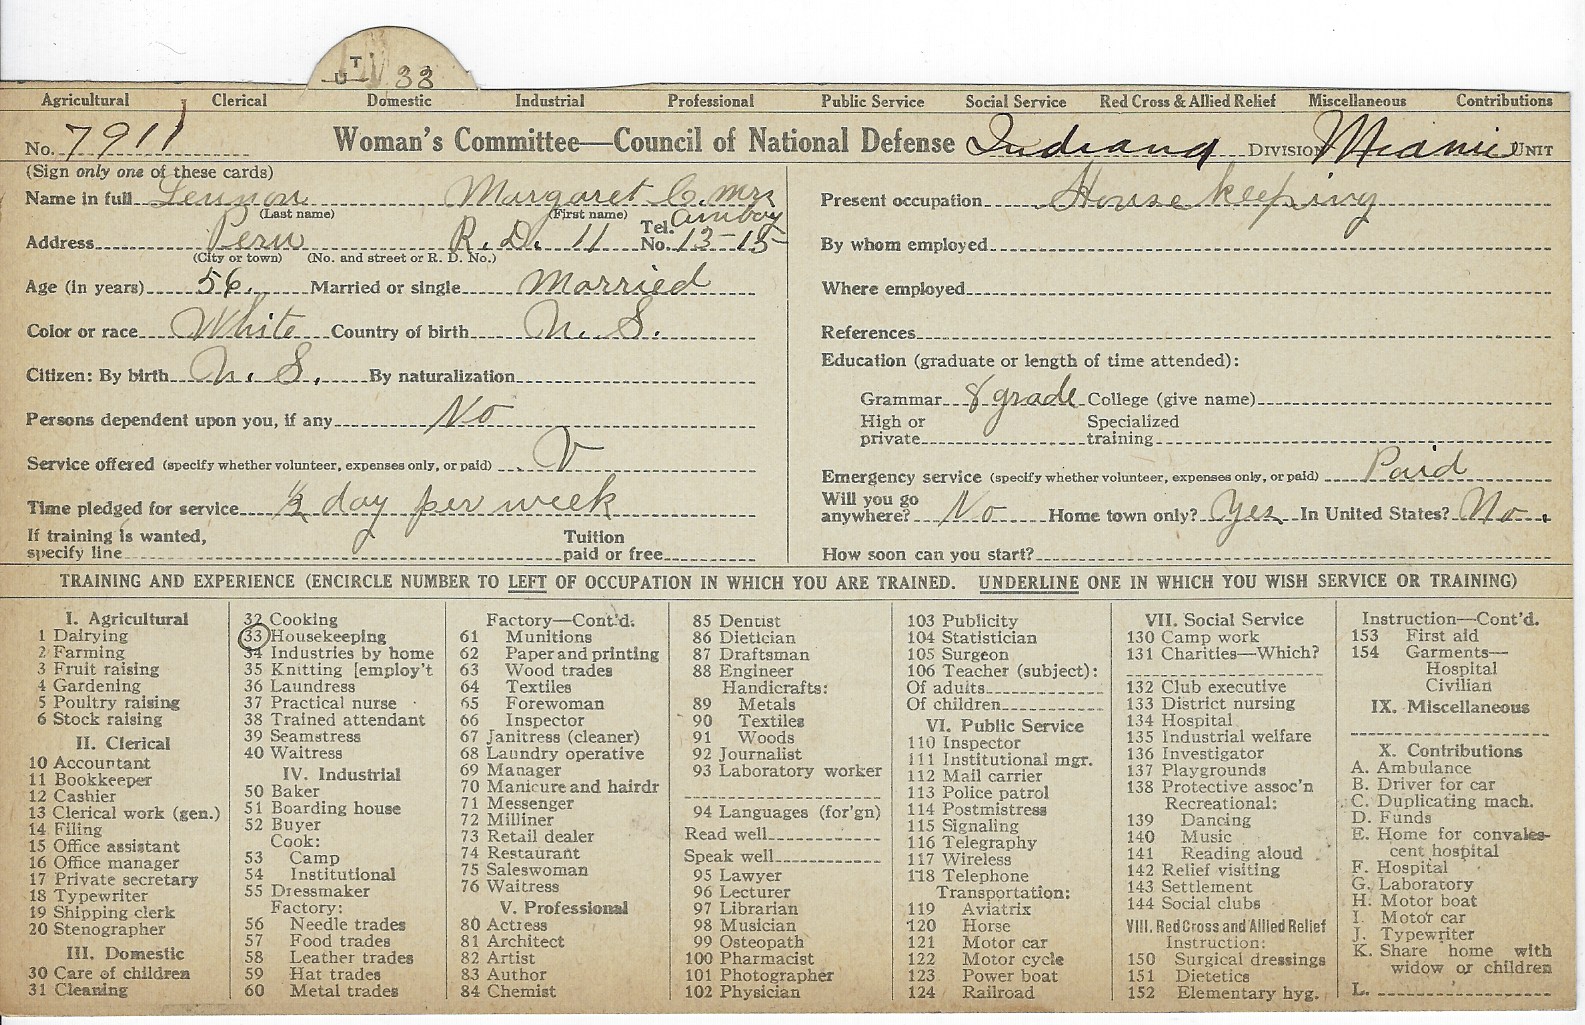 U T 33
Agricultural Clerical Domestic Industrial Professional Public Service Social Service Red Cross & Allied Relief Miscellaneous Contributions
No. 7911 Woman's Committee—Council of National Defense Indiana DIVISION Miami UNIT
(Sign only one of these cards)
Name in full Lennon Margaret C. Mrs
(Last name) (First name)
Address Peru R. D. 11 Tel. No. Amboy 13-15
(City or town) (No. and street or R. D. No.)
Age (in years) 56. Married or single Married
Color or race White Country of birth U. S.
Citizen: By birth U. S. By naturalization
Persons dependent upon you, if any No
Service offered (specify whether volunteer, expenses only, or paid) V
Time pledged for service ½ day per week
If training is wanted, specify line Tuition paid or free
Present occupation House keeping
By whom employed
Where employed
References
Education (graduate or length of time attended):
Grammar 8 grade College (give name)
High or private Specialized training
Emergency service (specify whether volunteer, expenses only, or paid) Paid
Will you go anywhere? No Home town only? Yes In United States? No.
How soon can you start?
TRAINING AND EXPERIENCE (ENCIRCLE NUMBER TO LEFT OF OCCUPATION IN WHICH YOU ARE TRAINED. UNDERLINE ONE IN WHICH YOU WISH SERVICE OR TRAINING)
I. Agricultural
1 Dairying
2 Farming
3 Fruit raising
4 Gardening
5 Poultry raising
6 Stock raising
II. Clerical
10 Accountant
11 Bookkeeper
12 Cashier
13 Clerical work (gen.)
14 Filing
15 Office assistant
16 Office manager
17 Private secretary
18 Typewriter
19 Shipping clerk
20 Stenographer
III. Domestic
30 Care of children
31 Cleaning
32 Cooking
33 Housekeeping
34 Industries by home
35 Knitting [employ't
36 Laundress
37 Practical nurse
38 Trained attendant
39 Seamstress
40 Waitress
IV. Industrial
50 Baker
51 Boarding house
52 Buyer
Cook:
53 Camp
54 Institutional
55 Dressmaker
Factory:
56 Needle trades
57 Food trades
58 Leather trades
59 Hat trades
60 Metal trades
Factory—Cont'd.
61 Munitions
62 Paper and printing
63 Wood trades
64 Textiles
65 Forewoman
66 Inspector
67 Janitress (cleaner)
68 Laundry operative
69 Manager
70 Manicure and hairdr
71 Messenger
72 Milliner
73 Retail dealer
74 Restaurant
75 Saleswoman
76 Waitress
V. Professional
80 Actress
81 Architect
82 Artist
83 Author
84 Chemist
85 Dentist
86 Dietician
87 Draftsman
88 Engineer
Handicrafts:
89 Metals
90 Textiles
91 Woods
92 Journalist
93 Laboratory worker
94 Languages (for'gn)
Read well
Speak well
95 Lawyer
96 Lecturer
97 Librarian
98 Musician
99 Osteopath
100 Pharmacist
101 Photographer
102 Physician
103 Publicity
104 Statistician
105 Surgeon
106 Teacher (subject):
Of adults
Of children
VI. Public Service
110 Inspector
111 Institutional mgr.
112 Mail carrier
113 Police patrol
114 Postmistress
115 Signaling
116 Telegraphy
117 Wireless
118 Telephone
Transportation:
119 Aviatrix
120 Horse
121 Motor car
122 Motor cycle
123 Power boat
124 Railroad
VII. Social Service
130 Camp work
131 Charities—Which?
132 Club executive
133 District nursing
134 Hospital
135 Industrial welfare
136 Investigator
137 Playgrounds
138 Protective assoc'n
Recreational:
139 Dancing
140 Music
141 Reading aloud
142 Relief visiting
143 Settlement
144 Social clubs
VIII. Red Cross and Allied Relief
Instruction:
150 Surgical dressings
151 Dietetics
152 Elementary hyg.
Instruction—Cont'd.
153 First aid
154 Garments—
Hospital
Civilian
IX. Miscellaneous
X. Contributions
A. Ambulance
B. Driver for car
C. Duplicating mach.
D. Funds
E. Home for convales-
cent hospital
F. Hospital
G. Laboratory
H. Motor boat
I. Motor car
J. Typewriter
K. Share home with
widow or children
L.